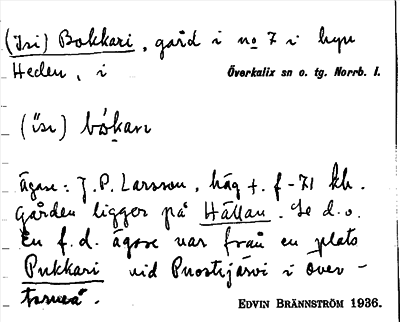 (Isi) Bokkari, gård i no 7 i byn
Heden, i Överkalix sn o. tg. Norrb. l.
(ìsi) bòkari
ägare: J. P. Larsson, häg +. f-71 kh.
gården ligger på Hällan. Se d.o.
En f.d. ägare var från en plats
Pukkari vid Puostijärvi i Över-
torneå.
EDVIN BRÄNNSTRÖM 1936.